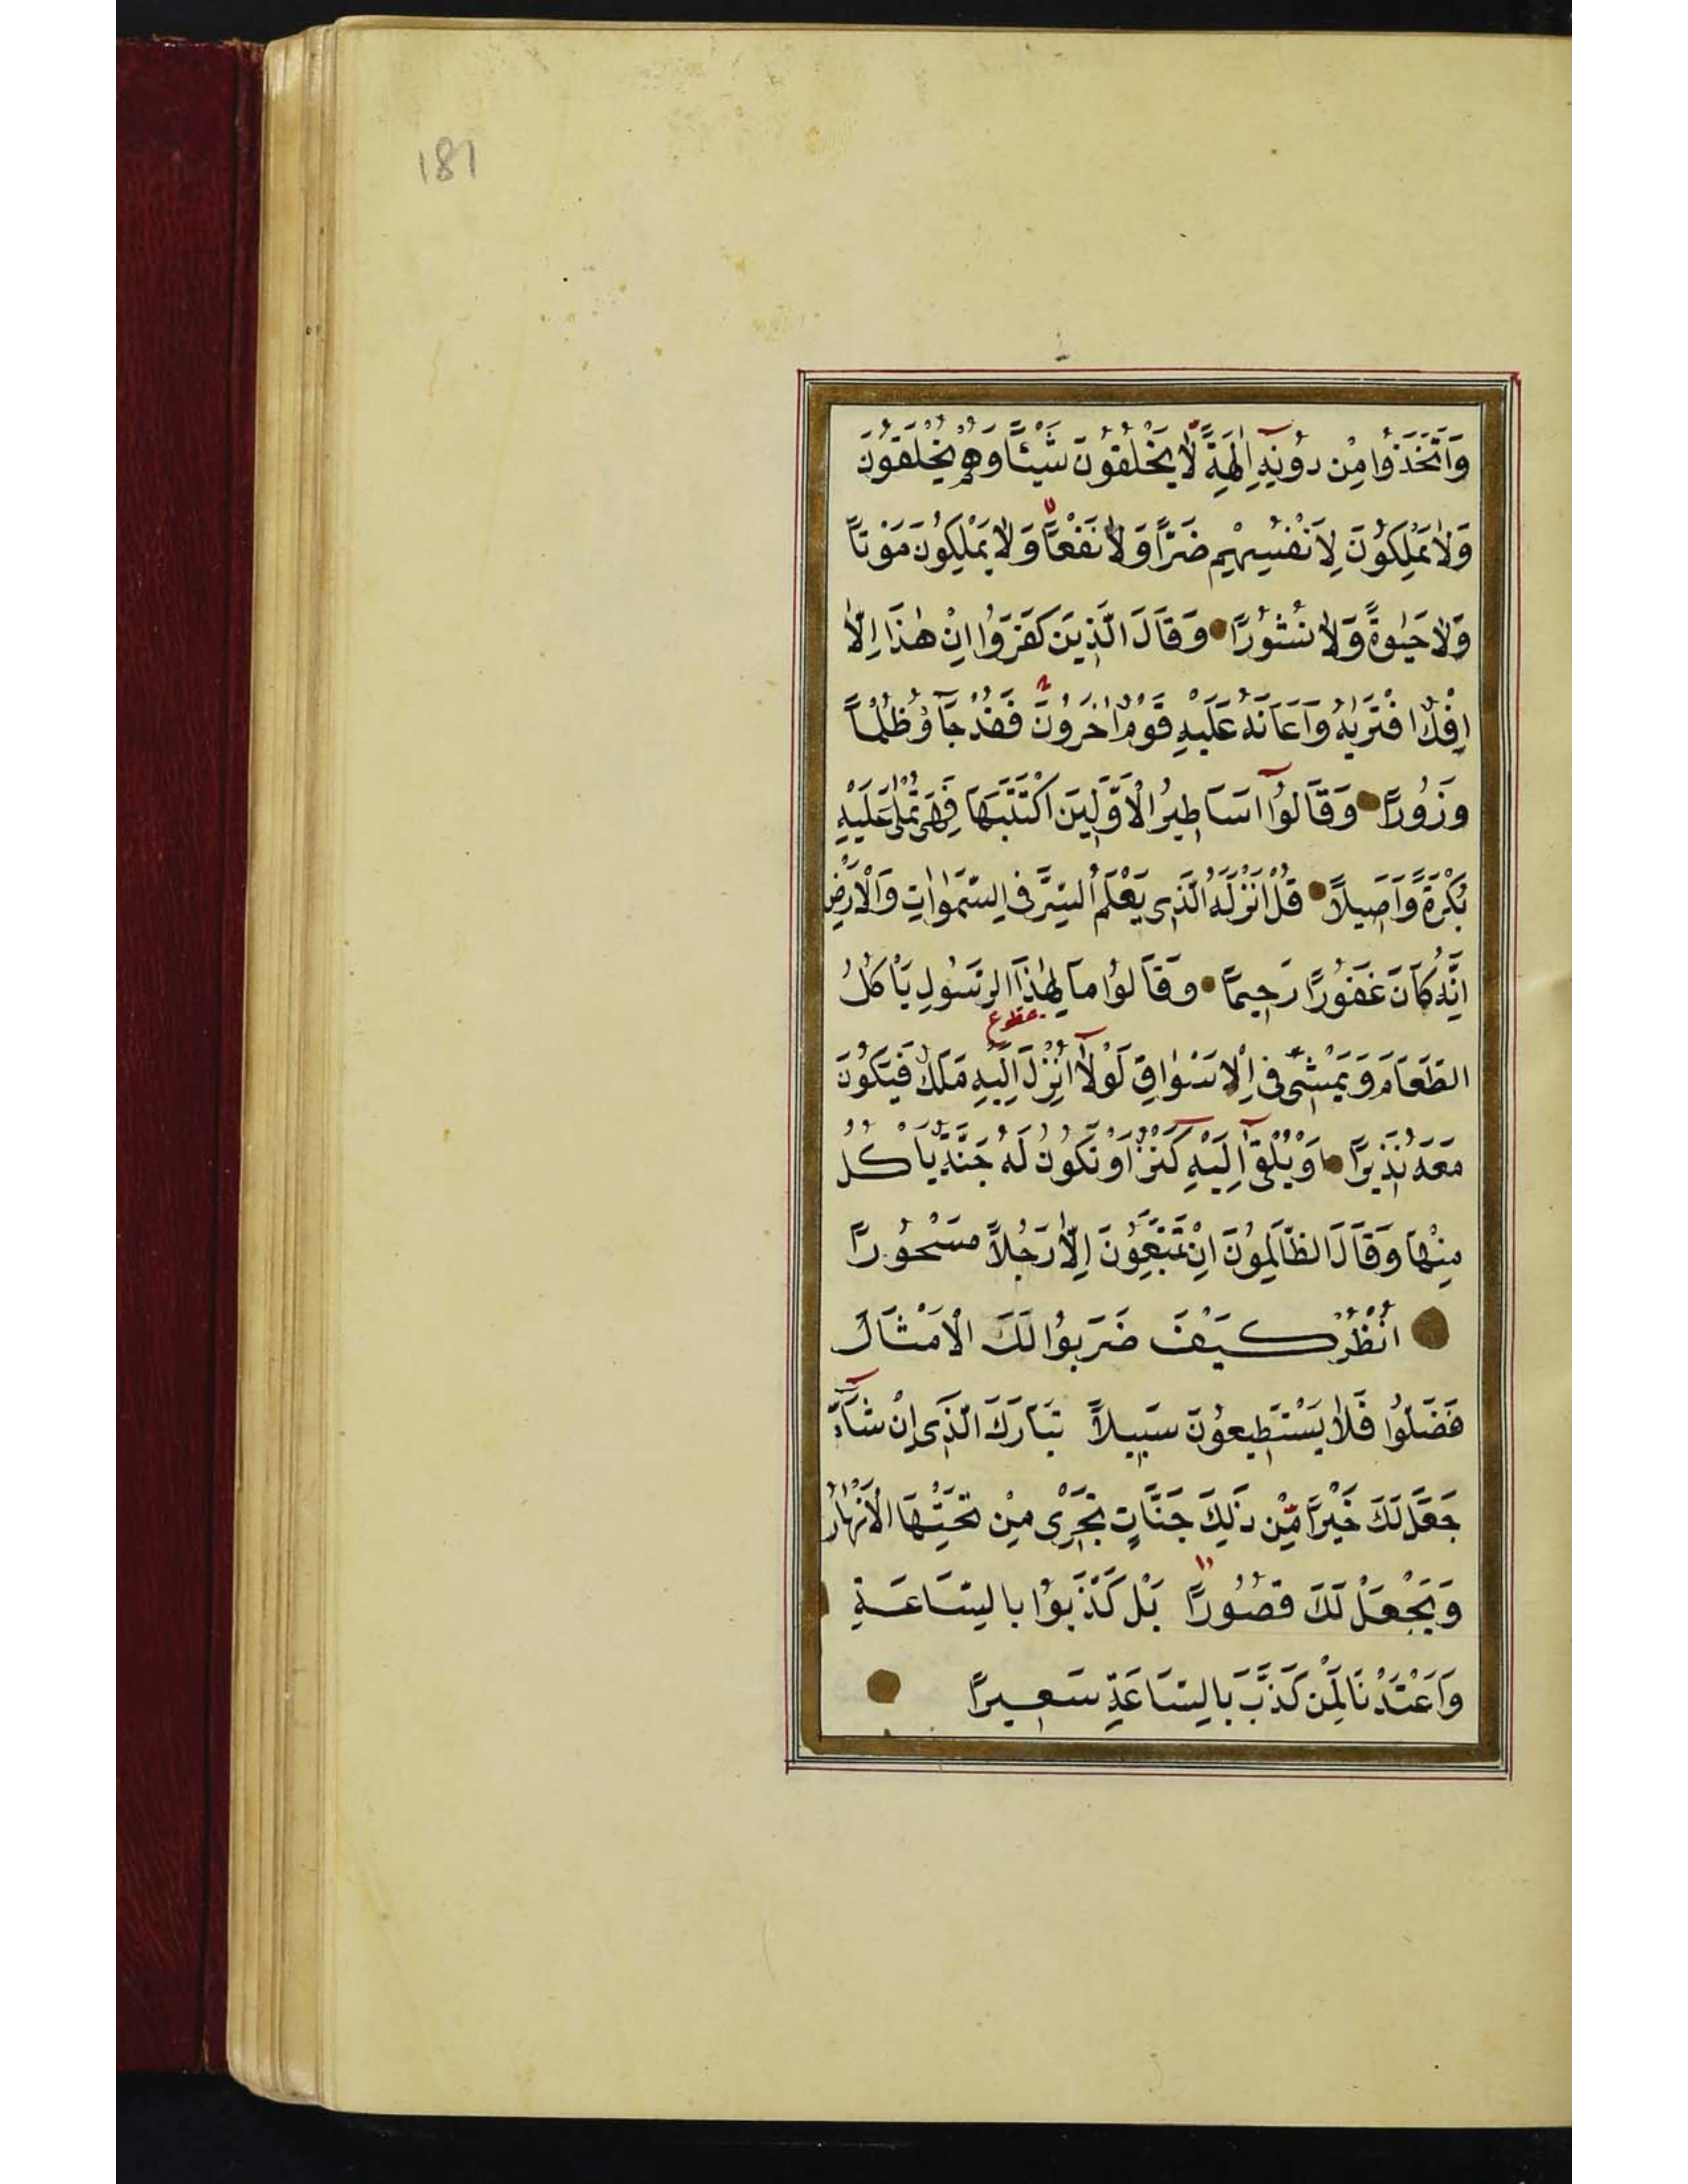 181
وَاتَّخَذُوا مِنْ دُونِهِ اٰلِهَةً لَّا يَخْلُقُونَ شَيْئًا وَهُمْ يُخْلَقُونَ
وَلَا يَمْلِكُونَ لِاَنْفُسِهِمْ ضَرًّا وَلَا نَفْعًا وَلَا يَمْلِكُونَ مَوْتًا
وَلَا حَيٰوةً وَلَا نُشُورًا وَقَالَ الَّذِينَ كَفَرُوا اِنْ هٰذَا اِلَّا
اِفْكٌ افْتَرٰيهُ وَاَعَانَهُ عَلَيْهِ قَوْمٌ اٰخَرُونَ فَقَدْ جَاؤُ ظُلْمًا
وَزُورًا وَقَالُوا اَسَاطِيرُ الْاَوَّلِينَ اكْتَتَبَهَا فَهِىَ تُمْلٰى عَلَيْهِ
بُكْرَةً وَاَصِيلًا قُلْ اَنْزَلَهُ الَّذِى يَعْلَمُ السِّرَّ فِى السَّمٰوَاتِ وَالْاَرْضِ
اِنَّهُ كَانَ غَفُورًا رَحِيمًا وَقَالُوا مَا لِهٰذَا الرَّسُولِ يَأْكُلُ
مقطوع
الطَّعَامَ وَيَمْشِى فِى الْاَسْوَاقِ لَوْلَا اُنْزِلَ اِلَيْهِ مَلَكٌ فَيَكُونَ
مَعَهُ نَذِيرًا اَوْ يُلْقٰى اِلَيْهِ كَنْزٌ اَوْ تَكُونُ لَهُ جَنَّةٌ يَأْكُلُ
مِنْهَا وَقَالَ الظَّالِمُونَ اِنْ تَتَّبِعُونَ اِلَّا رَجُلًا مَسْحُورًا
اُنْظُرْ كَيْفَ ضَرَبُوا لَكَ الْاَمْثَالَ
فَضَلُّوا فَلَا يَسْتَطِيعُونَ سَبِيلًا تَبَارَكَ الَّذِى اِنْ شَآءَ
جَعَلَ لَكَ خَيْرًا مِّنْ ذٰلِكَ جَنَّاتٍ تَجْرِى مِنْ تَحْتِهَا الْاَنْهَارُ
وَيَجْعَلْ لَكَ قُصُورًا بَلْ كَذَّبُوا بِالسَّاعَةِ
وَاَعْتَدْنَا لِمَنْ كَذَّبَ بِالسَّاعَةِ سَعِيرًا